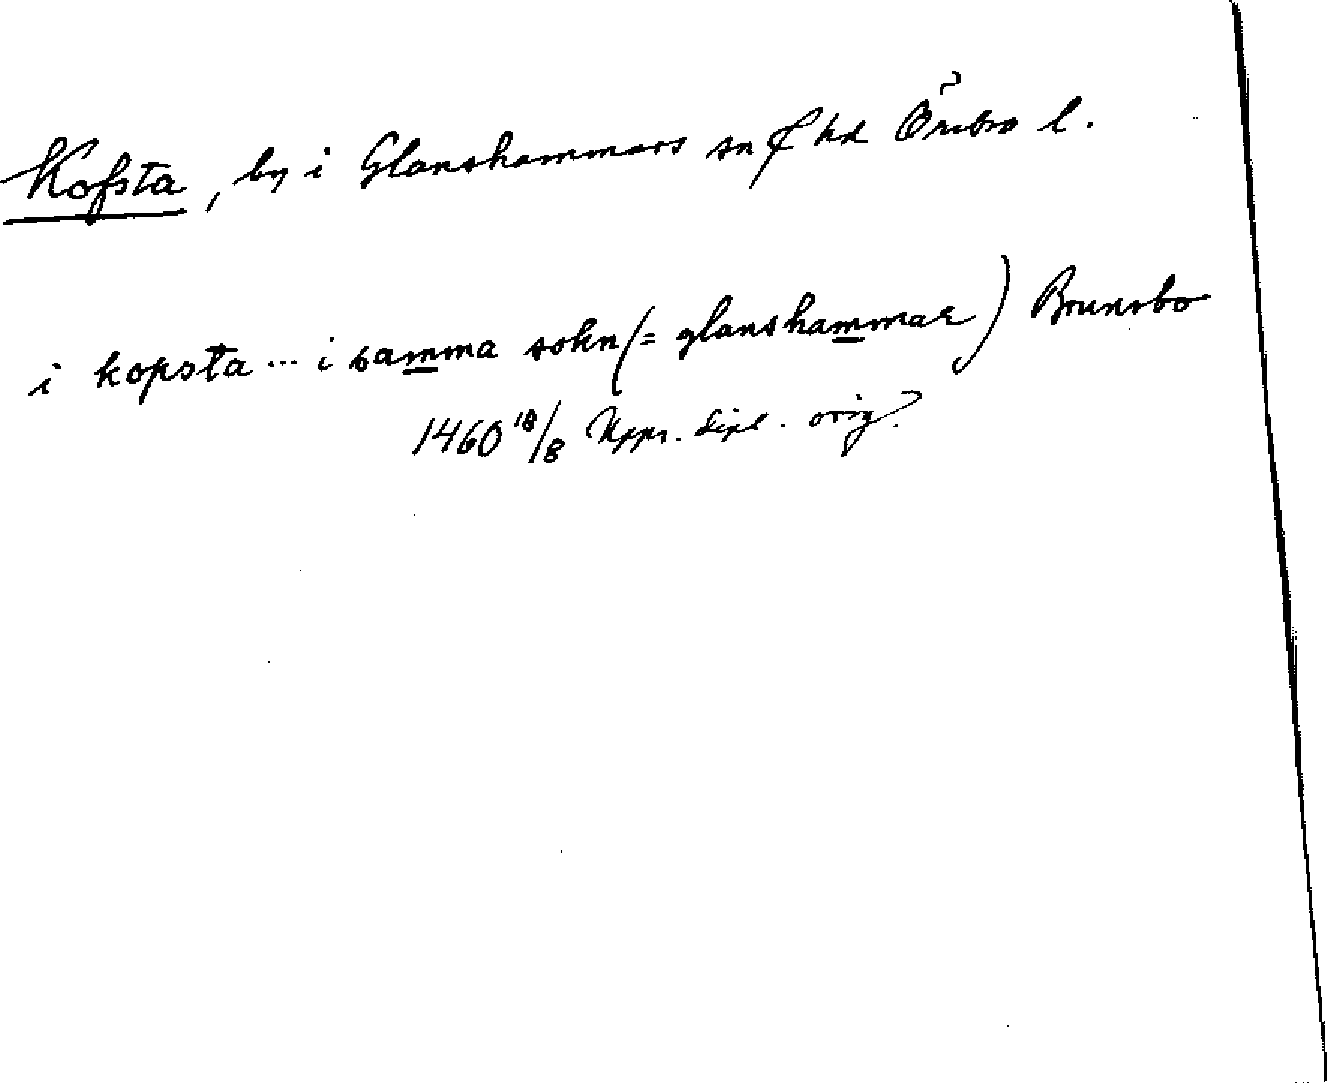 Kofsta, by i Glanshammars sn & hd Örebro l.
i kopsta ... i samma sokn (= glanshammar) Brunsbo
1460 18/8 Uppr. dipl. orig.